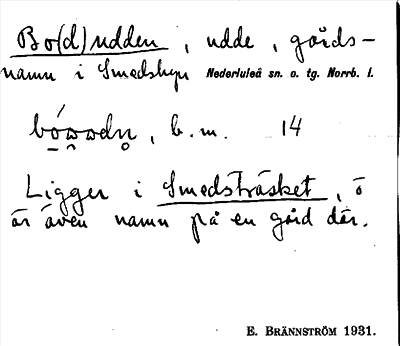 Bo(d)udden, udde, gårds-
namn i Smedsbyn Nederluleå sn. o. tg. Norrb. l.
b. m. 14
Ligger i Smedsträsket, o
är även namn på en gård där.
E. BRÄNNSTRÖM 1931.